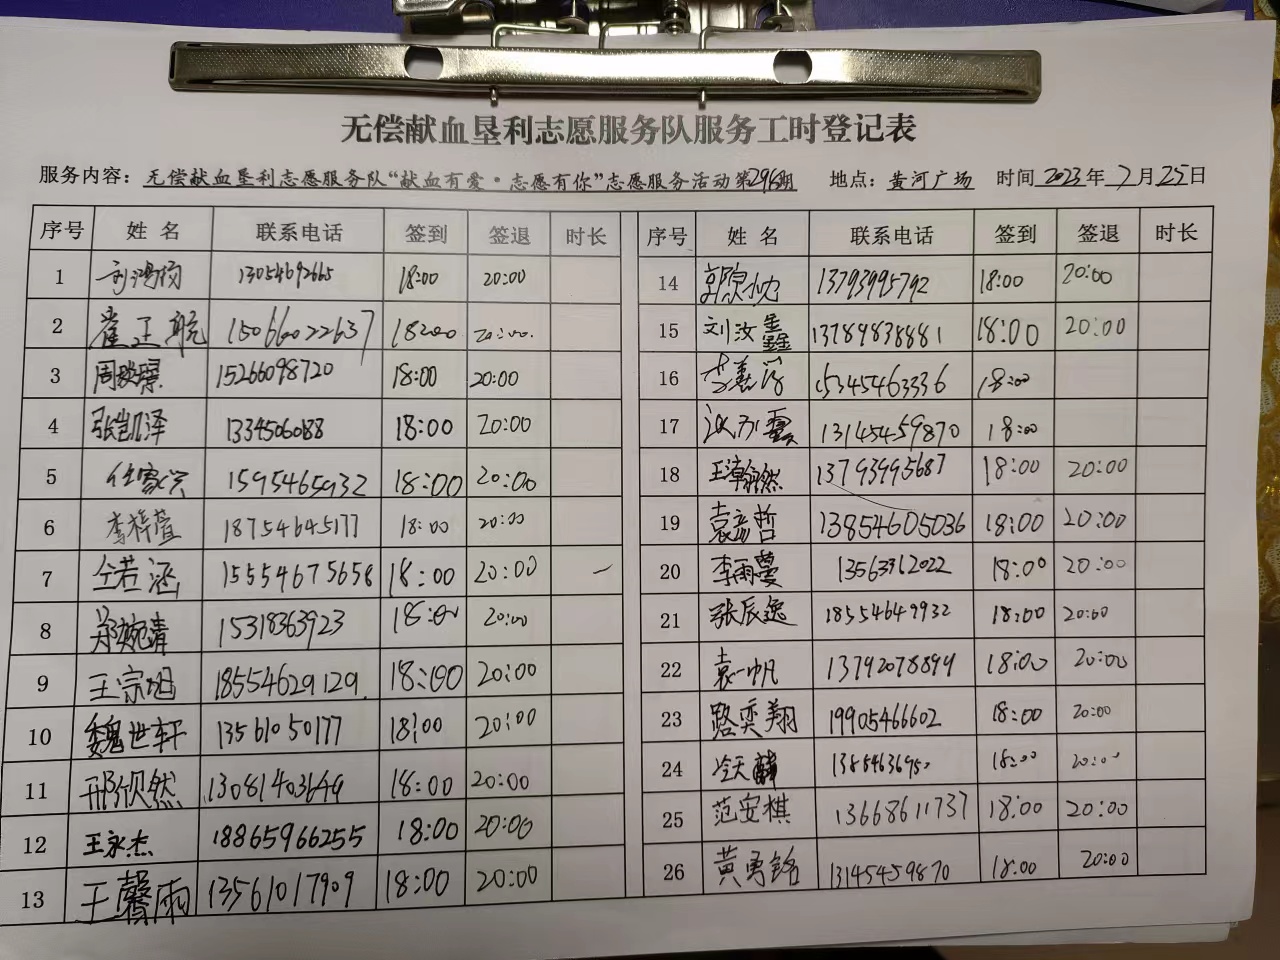 无偿献血垦利志愿服务队服务工时登记表
服务内容：无偿献血垦利志愿服务队“献血有爱·志愿有你”志愿服务活动第296期 地点：黄河广场 时间 2023年7月25日
序号 姓名 联系电话 签到 签退 时长 序号 姓名 联系电话 签到 签退 时长
1 13054692665 18:00 20:00 14 13793995792 18:00 20:00
2 崔正航 15066022637 18:00 20:00 15 刘汝鑫 13789838881 18:00 20:00
3 15266098720 18:00 20:00 16 15345463336 18:00
4 张凯泽 1334506088 18:00 20:00 17 13145459870 18:00
5 任家兴 1595465932 18:00 20:00 18 王瀚然 13793995687 18:00 20:00
6 李梓萱 18754645177 18:00 20:00 19 袁彦哲 13854605036 18:00 20:00
7 仝若涵 15554675658 18:00 20:00 20 李雨蔓 13563362022 18:00 20:00
8 郑婉清 15318363923 18:00 20:00 21 张辰逸 18554649932 18:00 20:00
9 王宗旭 18554629129 18:00 20:00 22 袁一帆 13792078899 18:00 20:00
10 魏世轩 13561050177 18:00 20:00 23 路奕翔 19905466602 18:00 20:00
11 18:00 20:00 24 18:00 20:00
12 王永杰 18865966255 18:00 20:00 25 范安棋 13668611737 18:00 20:00
13 王馨雨 13561017909 18:00 20:00 26 黄勇铭 13145459870 18:00 20:00